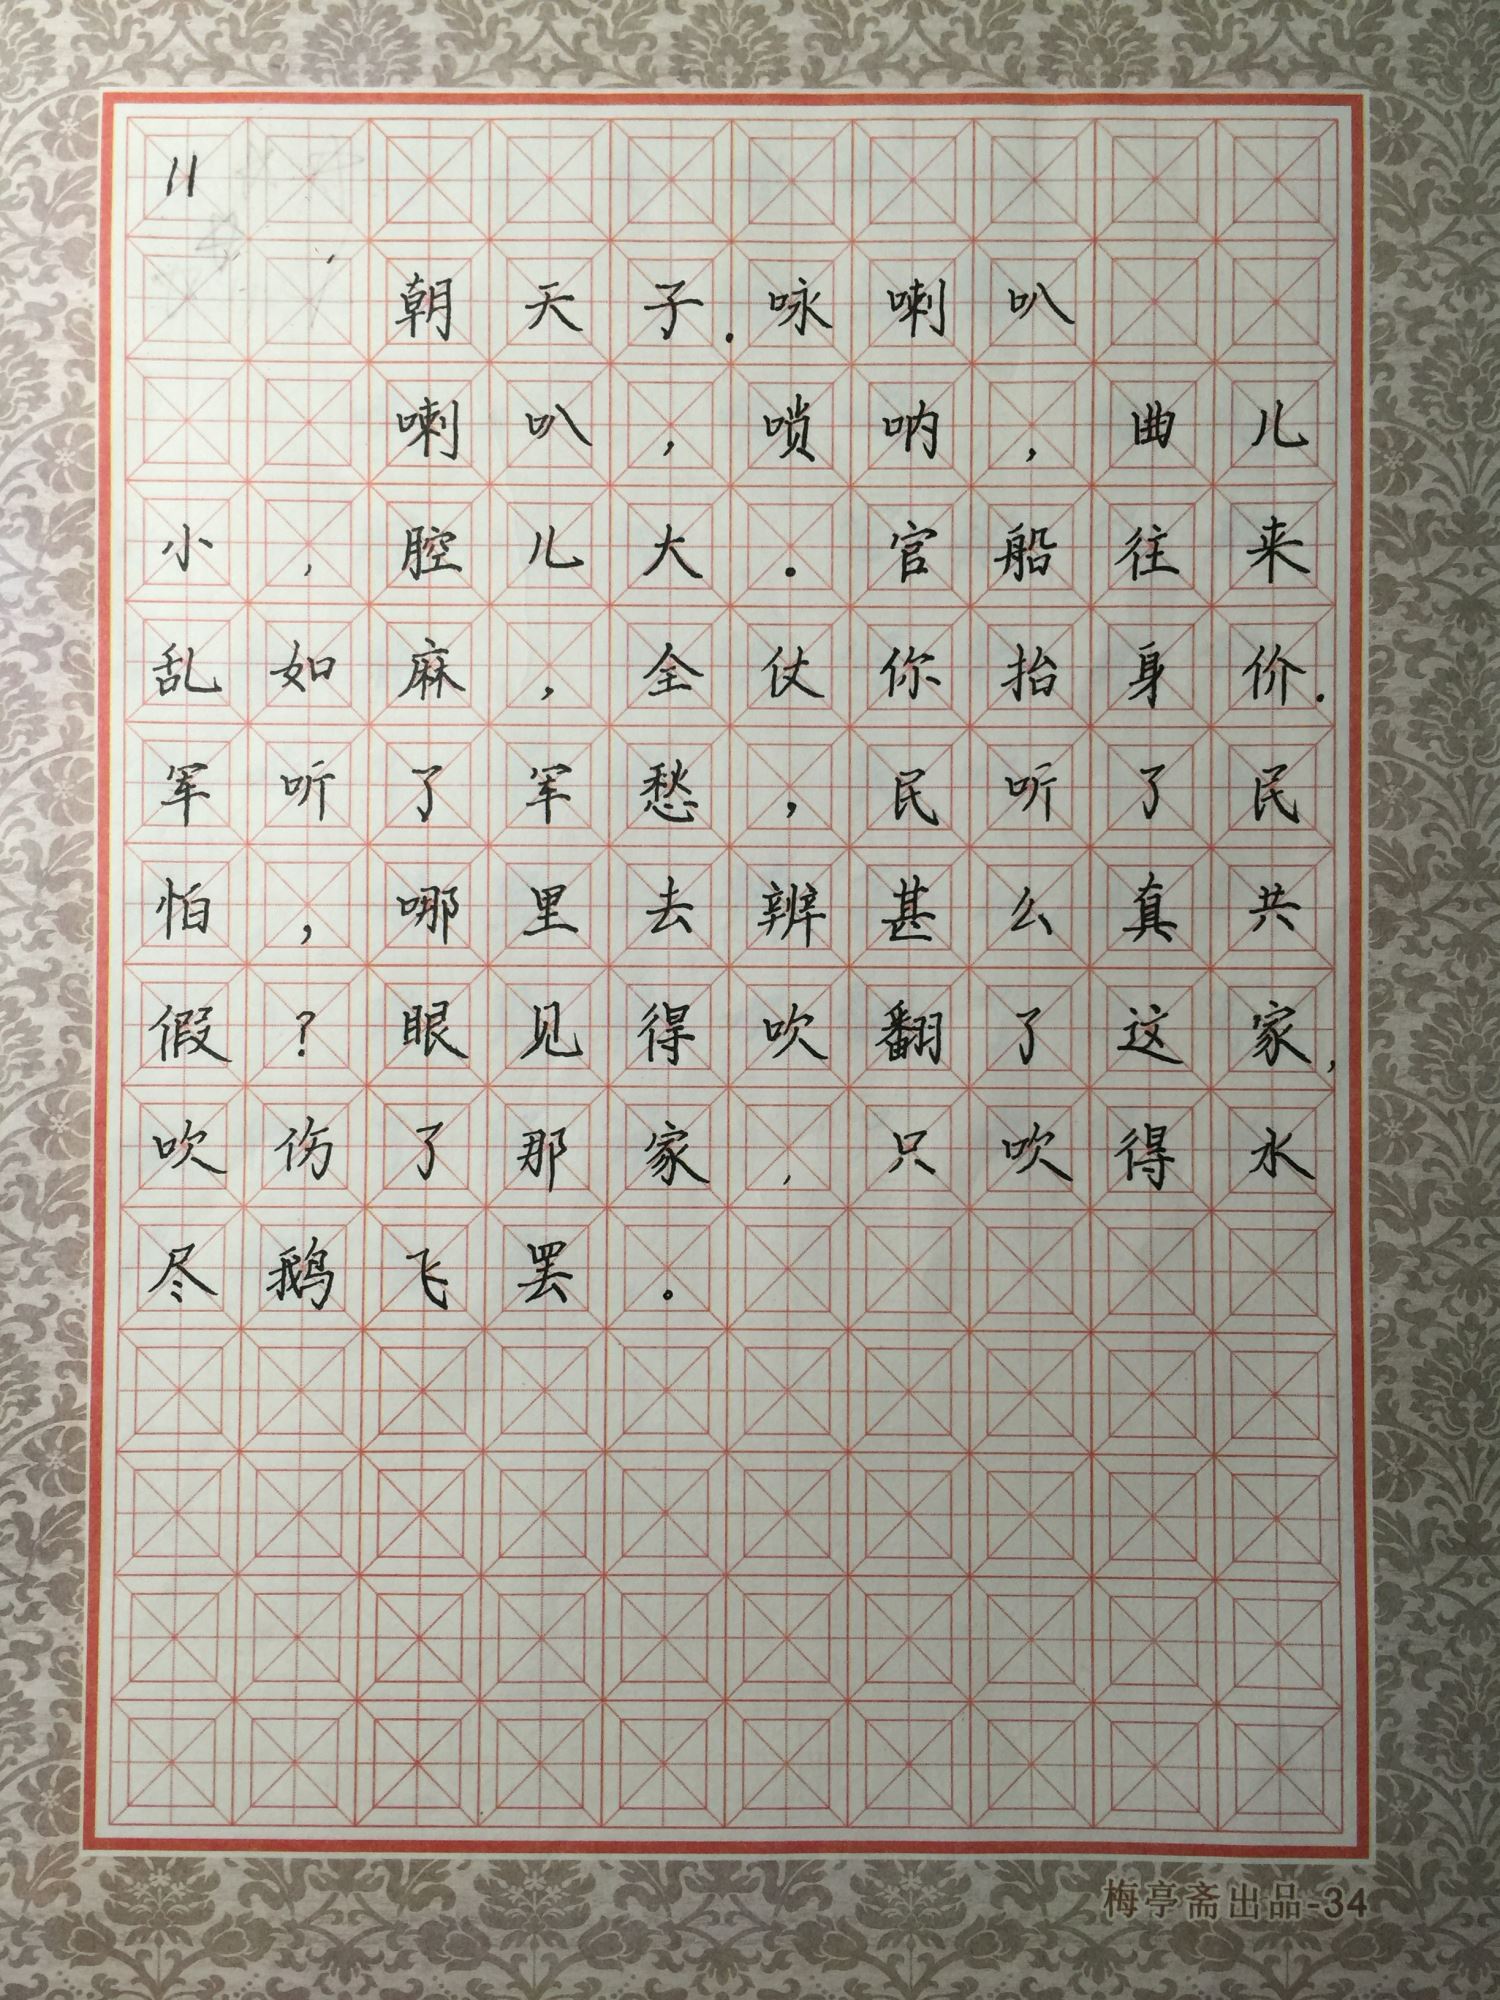 11
朝天子.咏喇叭
喇叭，唢呐，曲儿
小，腔儿大.官船往来
乱如麻，全仗你抬身价.
军听了军愁，民听了民
怕，哪里去辨甚么真共
假？眼见得吹翻了这家，
吹伤了那家，只吹得水
尽鹅飞罢。
梅亭斋出品-34